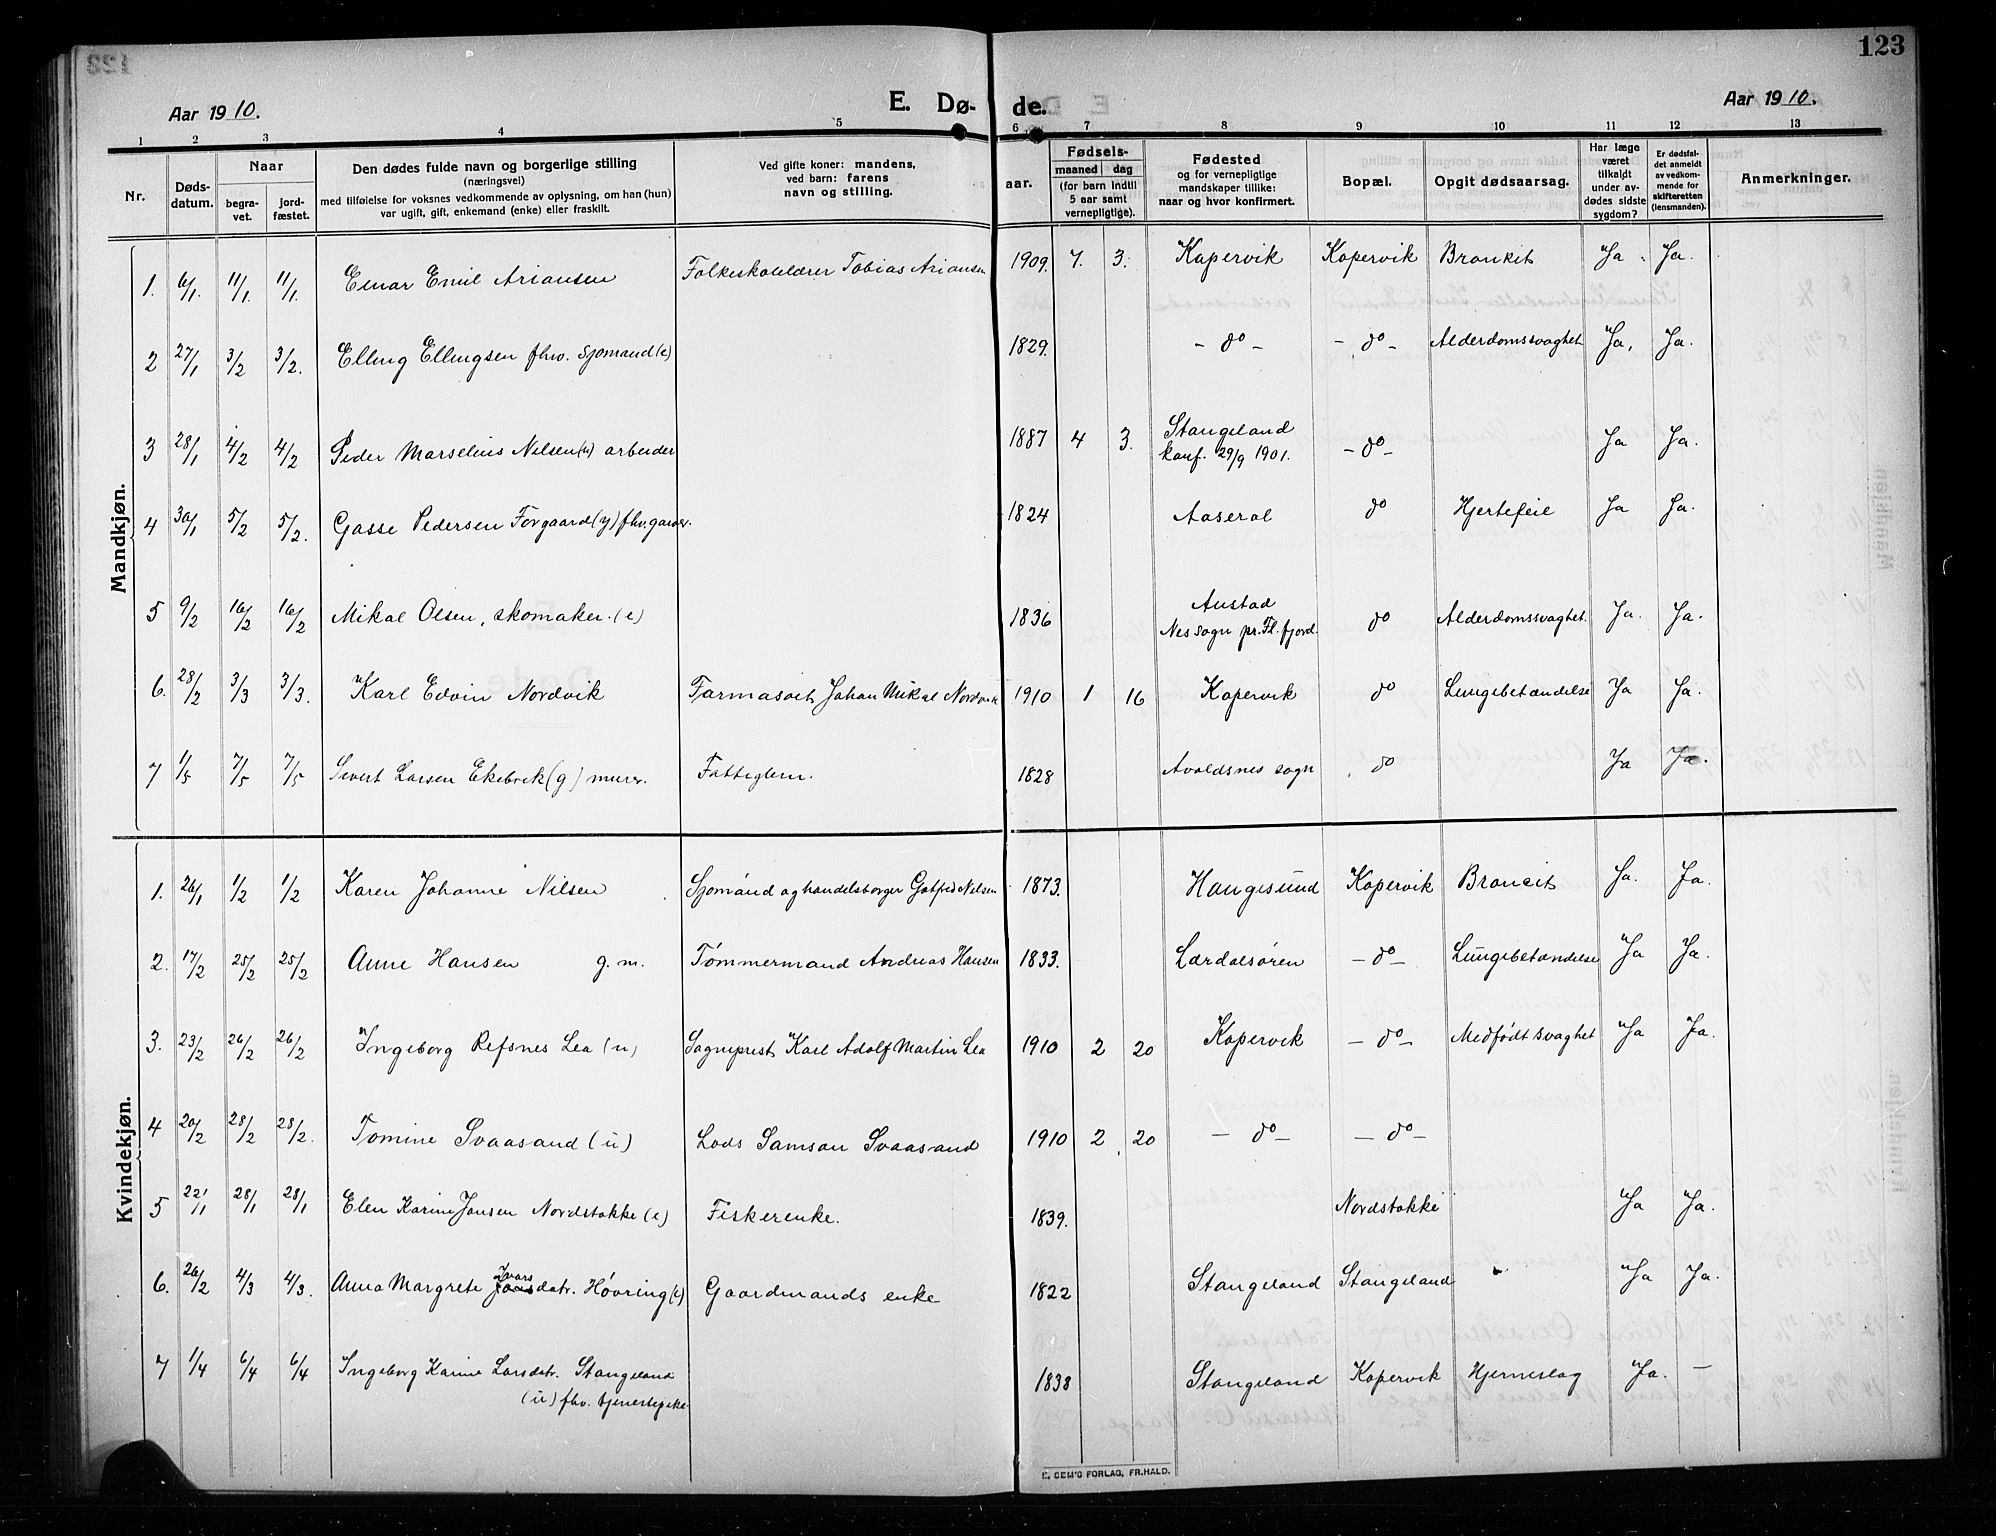 123
Aar 1910.
E. Dø-
de.
Aar 1910.
1 2 3 4 5 6 7 8 9 10 11 12 13
Nr.
Døds-
datum.
Naar
begra-
vet.
jord-
fæstet.
Den dødes fulde navn og borgerlige stilling
(næringsvei)
med tilføielse for voksnes vedkommende av oplysning, om han (hun)
var ugift, gift, enkemand (enke) eller fraskilt.
Ved gifte koner: mandens,
ved barn: farens
navn og stilling.
aar.
Fødsels-
maaned dag
(for barn indtil
5 aar samt
vernepligtige).
Fødested
og for vernepligtige
mandskaper tillike:
naar og hvor konfirmert.
Bopæl.
Opgit dødsaarsag.
Har læge
været
tilkaldt
under av-
dødes sidste
sygdom?
Er dødsfal-
det anmeldt
av vedkom-
mende for
skifteretten
(lensmanden).
Anmerkninger.
Mandkjøn.
1. 6/1. 11/1. 11/1. Einar Emil Ariansen Folkeskolelærer Tobias Ariansen 1909. 7. 3. Kopervik Kopervik Bronkit Ja. Ja.
2 27/1 3/2 3/2. Elling Ellingsen fhv. sjømand (e) 1829. - do - - do - Alderdomssvaghet Ja. Ja.
3 28/1 4/2 4/2 Peder Marselius Nilsen (u) arbeider 1887 4 3. Stangeland
konf. 29/9 1901. - do - Ja Ja.
4 30/1 5/2 5/2. Gasse Pedersen Forgaard (g) fhv. garver. 1824 Aaseral do Hjertefeil Ja Ja.
5 9/2 16/2 16/2 Mikal Olsen, skomaker. (e) 1836 Austad
Nes sogn pr. Fl. fjord. do Alderdomssvaghet. Ja. Ja.
6. 28/2 3/3 3/3. Karl Edvin Nordvik Farmasøit Johan Mikal Nordvik 1910 1 16 Kopervik do Lungebetændelse Ja Ja.
7 1/5 7/5 7/5 Sivert Larsen Ekebrek (g) murer. Fattiglem. 1828 Avaldsnes sogn do Ja Ja.
Kvindekjøn.
1. 26/1 1/2 1/2 Karen Johanne Nilsen Sjømand og handelsborger Gotfred Nilsen 1873. Haugesund Kopervik Broncit Ja. Ja.
2. 17/2 25/2 25/2 Anne Hansen g. m. Tømmermand Andreas Hansen 1833. Lærdalsøren - do - Lungebetændelse Ja Ja.
3. 23/2 26/2 26/2 Ingeborg Refsnes Lea (u) Sogneprest Karl Adolf Martin Lea 1910 2 20 Kopervik - do - Medfødt svaghet Ja Ja.
4 20/2 28/2 28/2. Tomine Svaasand (u) Lods Samson Svaasand 1910 2 20 - do - - do -
5 22/1 28/1 28/1 Elen Karine Jansen Nordstokke (e) Fiskerenke. 1839. Nordstokke Ja Ja.
6. 26/2 4/3 4/3. Anna Margrete Ivarsdatr. Høvring (e) Gaardmands enke 1822 Stangeland Stangeland Ja Ja.
7 1/4 6/4 6/4 Ingeborg Karine Larsdatr. Stangeland
(u) fhv. tjenestepike. 1838 Stangeland Kopervik Hjerneslag Ja. -
E. SEM'S FORLAG, FR.HALD.